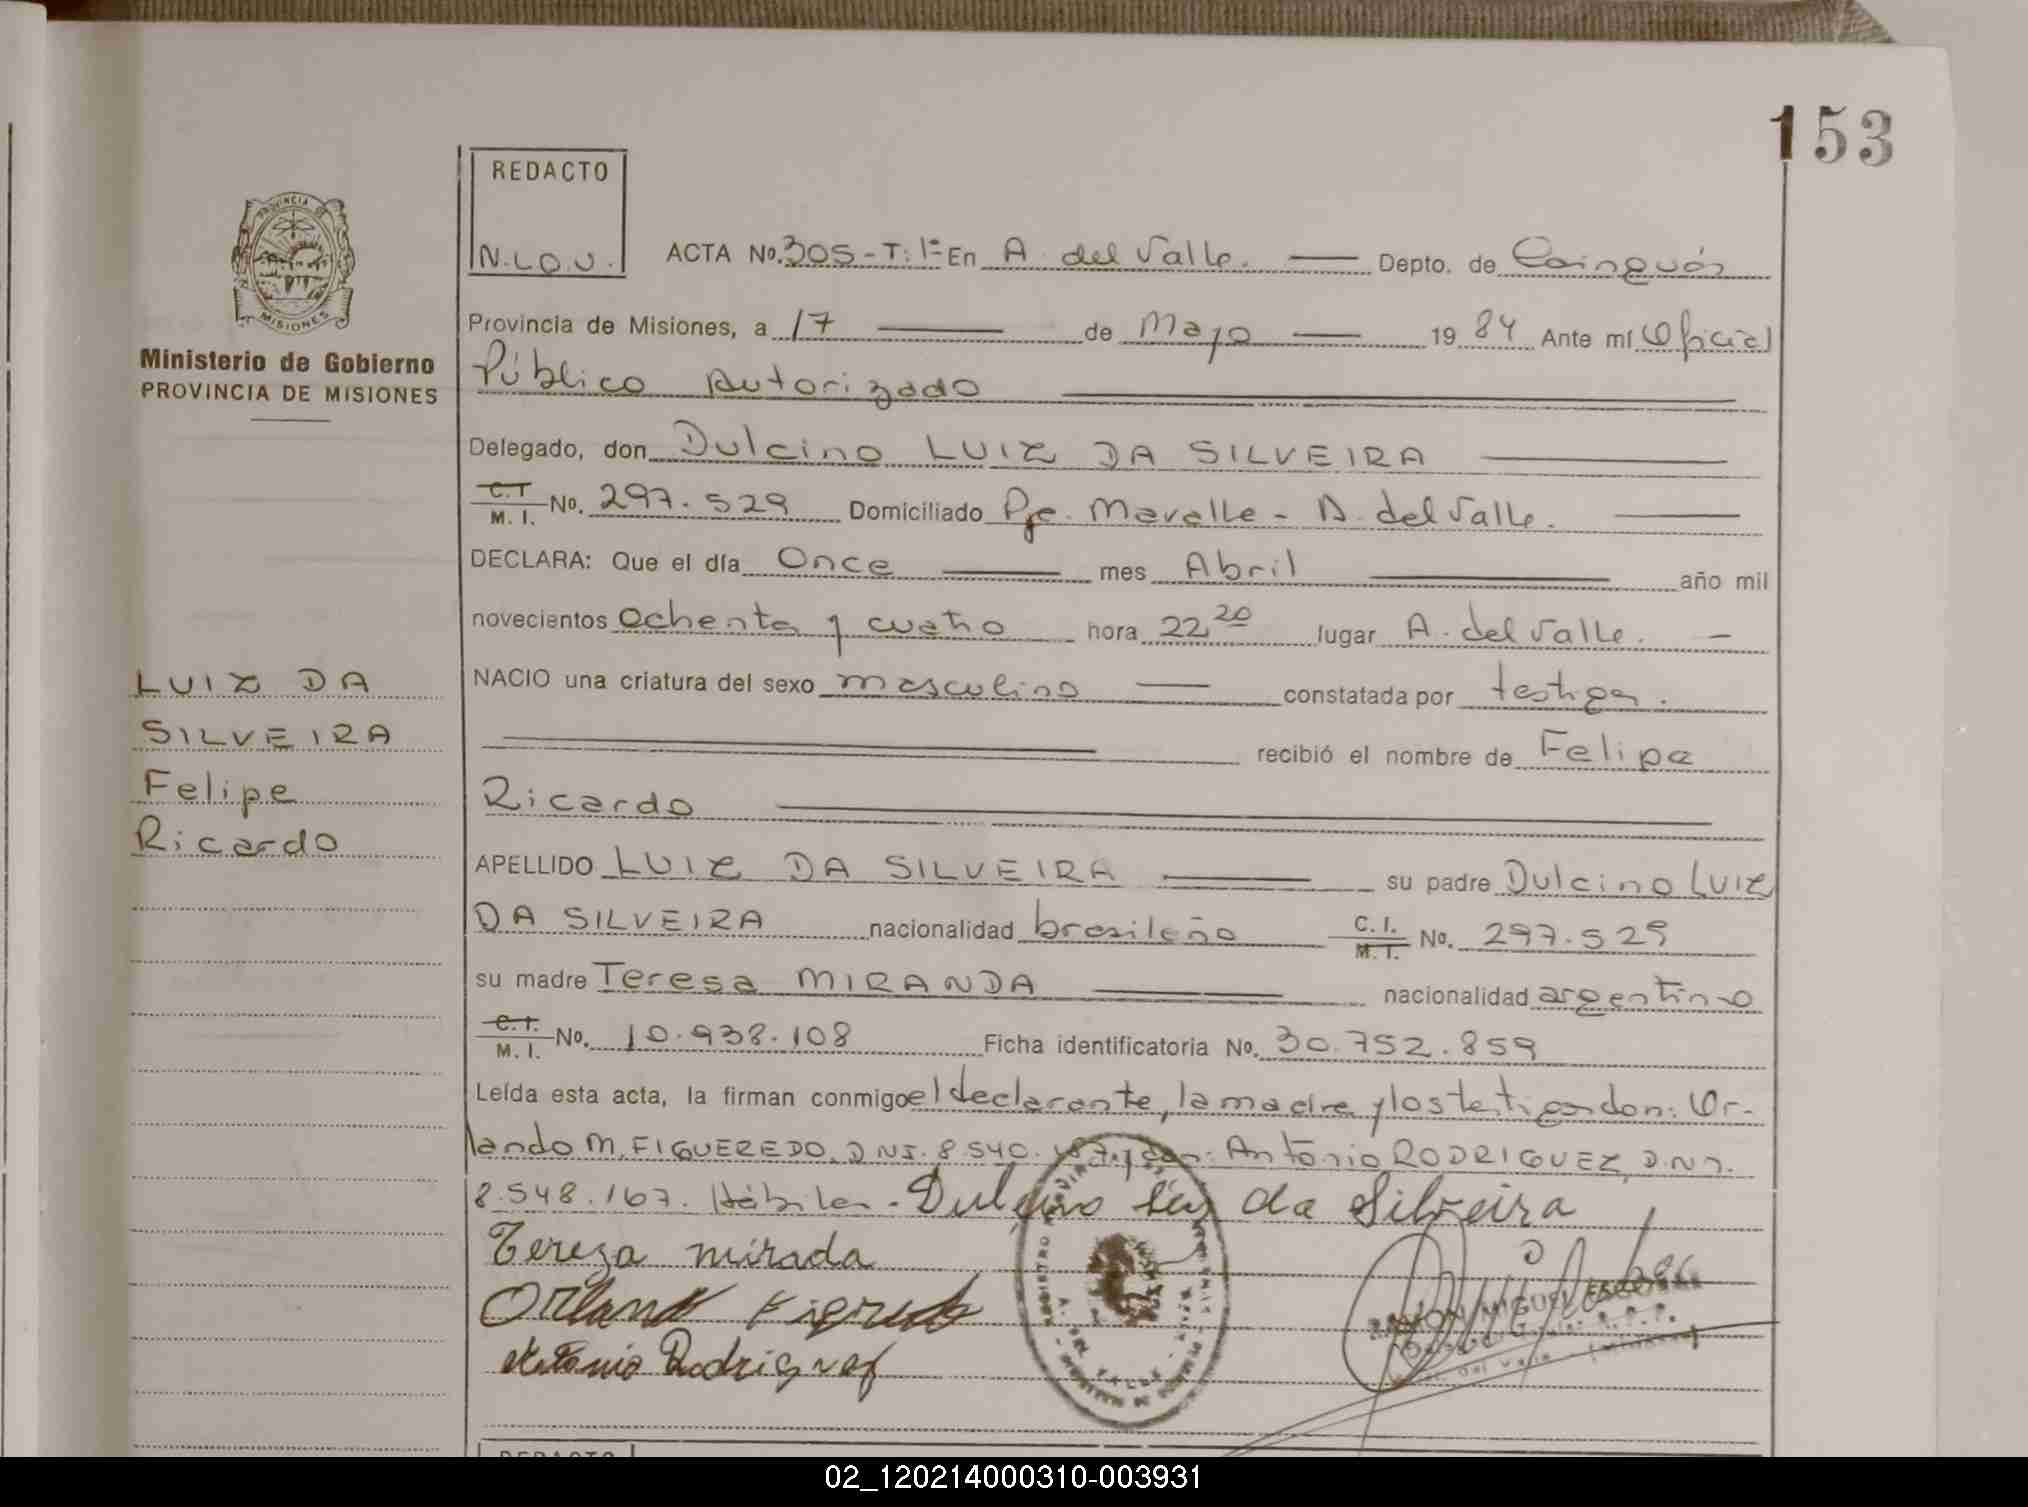 153
REDACTO
N.L.D.V.
ACTA No. 305-T: 1= En A. del Valle. Depto. de Cainguás
Provincia de Misiones, a 17 de Mayo 19 84 Ante mí Oficial
Público Autorizado
Delegado, don Dulcino LUIZ DA SILVEIRA
C.I. M. I. No. 297.529 Domiciliado Pje. Mavalle - A. del Valle.
DECLARA: Que el día Once mes Abril año mil
novecientos Ochenta y cuatro hora 22,20 lugar A. del Valle.
NACIO una criatura del sexo masculino constatada por testigos.
recibió el nombre de Felipe
Ricardo
APELLIDO LUIZ DA SILVEIRA su padre Dulcino LUIZ
DA SILVEIRA nacionalidad brasileño C.I. M.I. No. 297.529
su madre Teresa MIRANDA nacionalidad argentina
C.I. M.I. No. 10.938.108 Ficha identificatoria No. 30.752.859
Leída esta acta, la firman conmigo el declarante, la madre y los testigos don: Or-
lando M. FIGUEREDO, D.N.I. 8.540. y don: Antonio RODRIGUEZ, D.N.I.
8.548.167. Hábiles. - Dulcino Luiz da Silveira
Tereza mirada
Orlando Figueredo
Antonio Rodriguez
RAMON MIGUEL
PROVINCIA DE
MISIONES
Ministerio de Gobierno
PROVINCIA DE MISIONES
LUIZ DA
SILVEIRA
Felipe
Ricardo
REDACTO
02_120214000310-003931